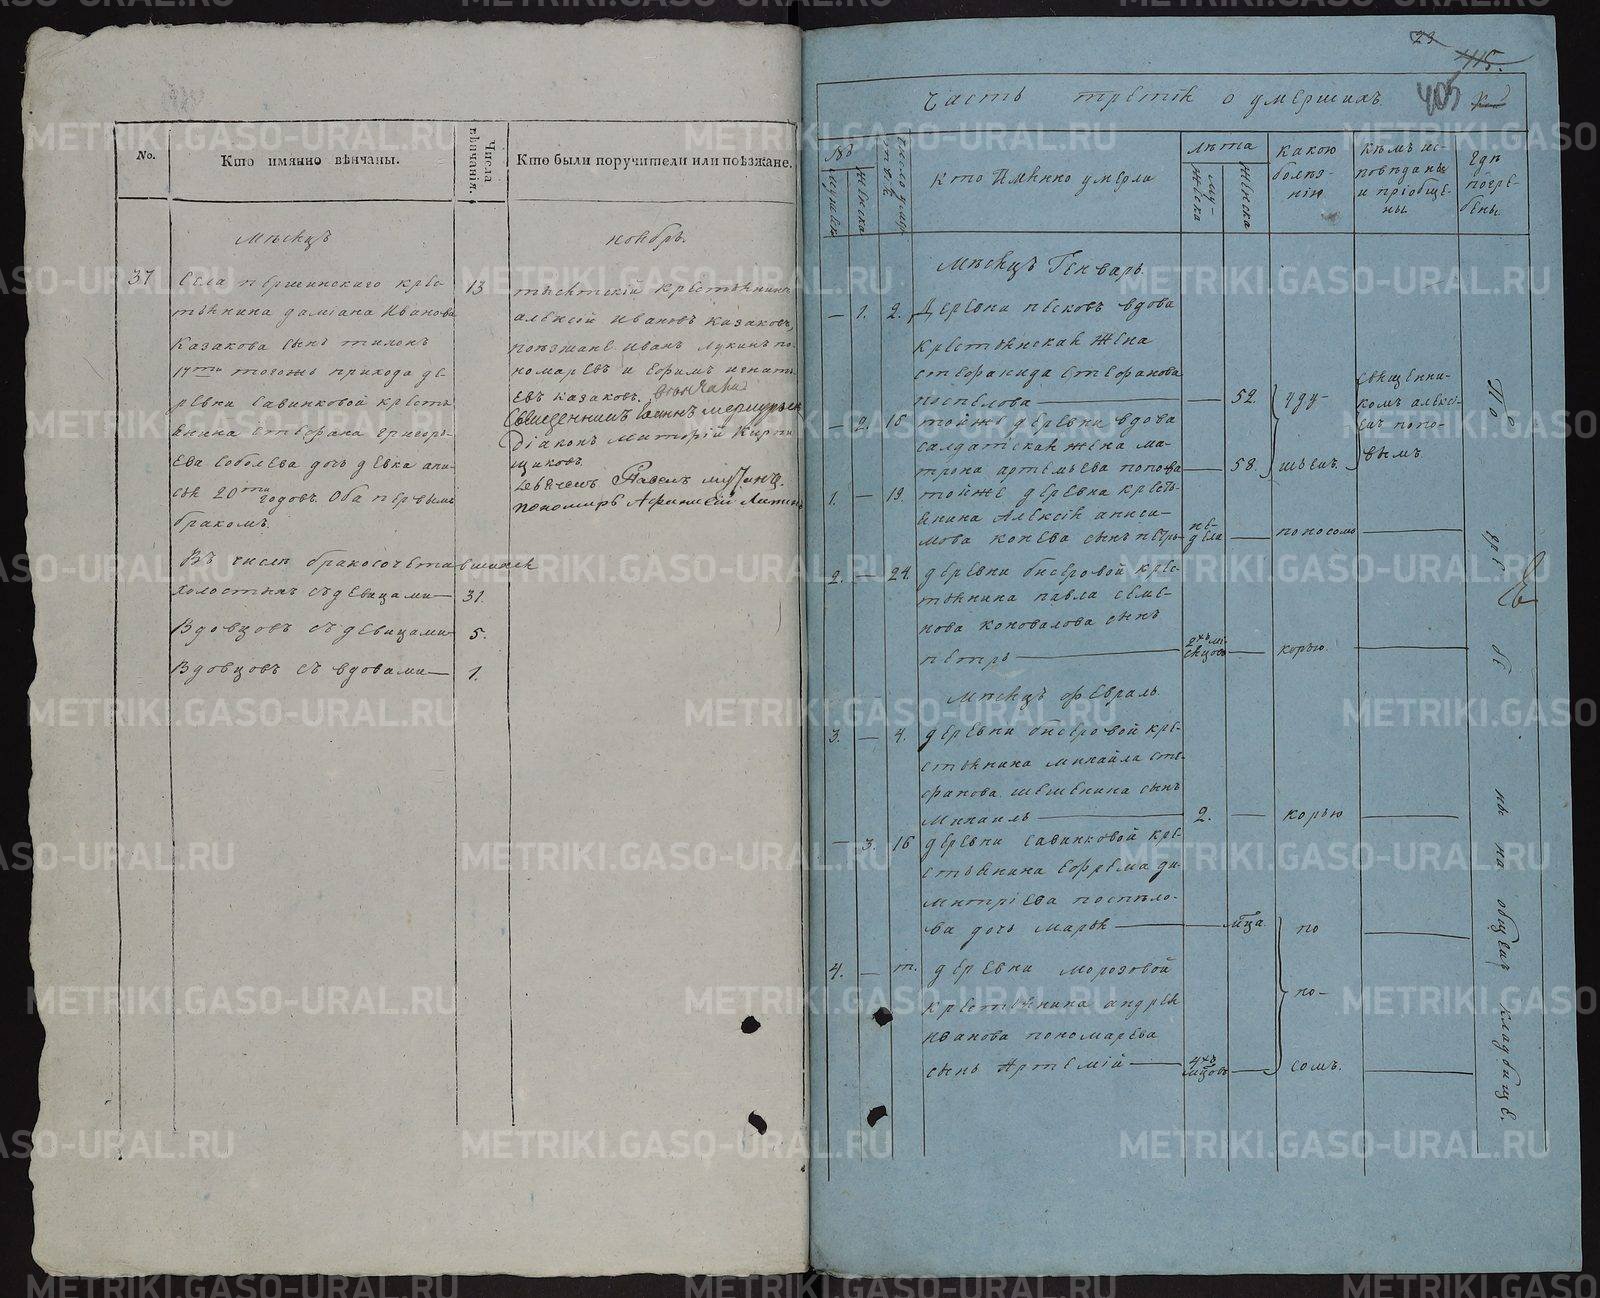 No.
Кто имянно вѣнчаны.
Числа вѣнчанія.
Кто были поручители или поѣзжане.
Мѣсяцъ
ноябрь.
37
Села першинскаго кре-
стьянина даміана Иванова
Казакова сынъ тихонъ
17ти тогожъ прихода де-
ревни савинковой кресть-
янина стефана григорь-
ева соболева дочь девка ани-
сья 20ти годовъ. Оба первымъ
бракомъ.
13
алексій ивановъ казаковъ,
поезжане иванъ лукинъ по-
номаревъ и ефимъ игнать-
евъ казаковъ. Венчали
Священникъ Іоаннъ
Діаконъ
Павелъ
пономарь
Въ числѣ бракосочетавшихся
холостыхъ съ девицами
31.
Вдовцовъ съ девицами
5.
Вдовцовъ съ вдовами
1.
23
415.
405
Часть третія о умершихъ
№
мужеска
женска
кто Имянно умерли
лѣта
мужеска
женска
какою
болѣз-
нію
кѣмъ ис-
поведаны
и пріобще-
ны.
гдѣ
погре-
бены.
Мѣсяцъ Генварь.
1. 2. Деревни песковъ вдова
крестьянская жена
стефанида стефанова
поспелова
52.
чау-
2. 16 тойже деревни вдова
салдатская жена ма-
трона артемьева попова
58.
священни-
комъ алексе-
емъ попо-
вымъ
1. 19. тойже деревни кресть-
янина Алексія аниси-
мова конева сынъ петръ
не-
деля
поносомъ
2. 24. деревни бисеровой кре-
стьянина павла семе-
нова коновалова сынъ
петръ
2хъ ме-
сяцовъ
корью.
Мѣсяцъ февраль.
3. 4. деревни бисеровой кре-
стьянина михайла сте-
фанова шешенина сынъ
Михаилъ
2.
корью
3. 16 деревни савинковой кре-
стьянина ефрема ди-
митріева поспело-
ва дочь марья
мца
по
4. т. деревни морозовой
крестьянина андрея
иванова пономарева
сынъ Артемій
4хъ
мцовъ
по-
сомъ.
По гре бе ны на общемъ кладбище.
METRIKI.GASO-URAL.RU